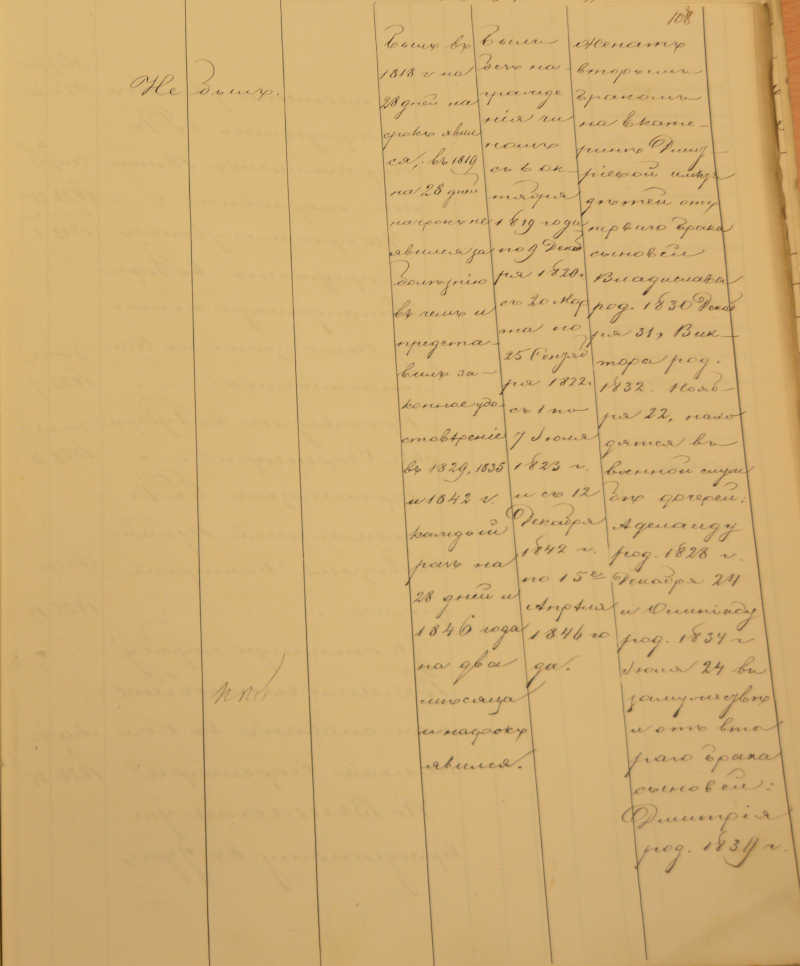 108
Не былъ.
Былъ въ
1818 г на
28 дней на
срокъ явил
ся; въ 1819
на 28 дней
на срокъ не
явился за
болѣзнію
въ чемъ и
предста-
вилъ за-
конное удо-
стовѣреніе
въ 1829, 1835
и 1842 г
каждый
разъ на
28 дней и
1846 года
на два
мѣсяца
и на срокъ
явился.
Были
безъ на
гражде
нія чи
номъ
съ 6 ок-
тября
1819 года
по 9 Декаб
ря 1820.
съ 20 Мар
та по
25 Генваб
ря 1822.
съ 1 по
7 Іюля
1823 г.
и съ 12
Декабря
1842 г.
по 15е
Апрѣля
1846 го
да.
Женатъ
вторымъ
бракомъ
на Екате-
ринѣ Дмит
ріевой имѣя
дѣтей отъ
перваго брака
сыновей
Владислава
род. 1830 Декаб
ря 31, Вик-
тора род.
1832. Нояб-
ря 22, нахо
дятся въ
военной служ
бѣ дочерей:
Аделаиду
род. 1828 г.
Декабря 24
и Олимпіаду
род. 1834 г
Іюля 24 въ
замужествѣ
и отъ вто
раго брака
сыновей:
Дмитрія
род. 1839 г.